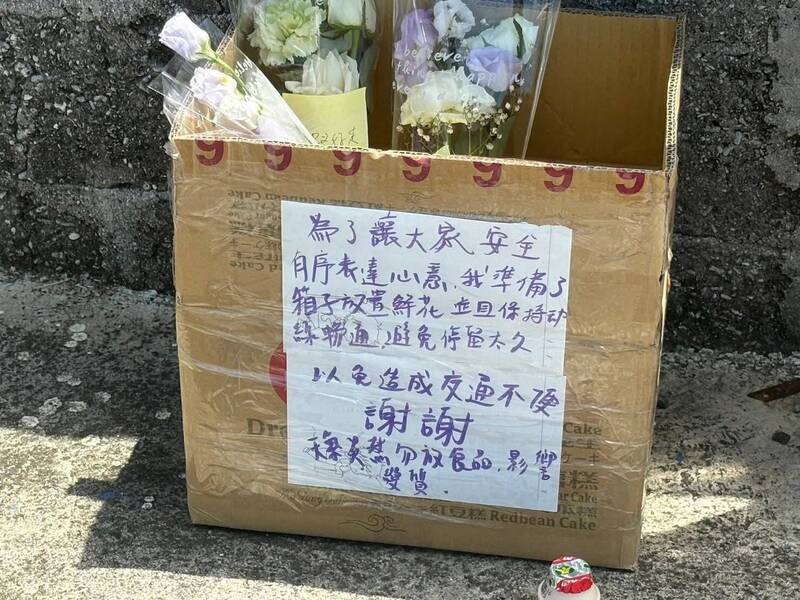 believe
9 9 9 9 9 9 9
Redbean Cake
為了讓大家安全
自序表達心意,我準備了
箱子放置鮮花並且保持动
線暢通,避免停留太久
以免造成交通不便
謝謝
炎熱勿放食品,影響
變質.
Cake
Cake
紅豆糕 Redbean Cake